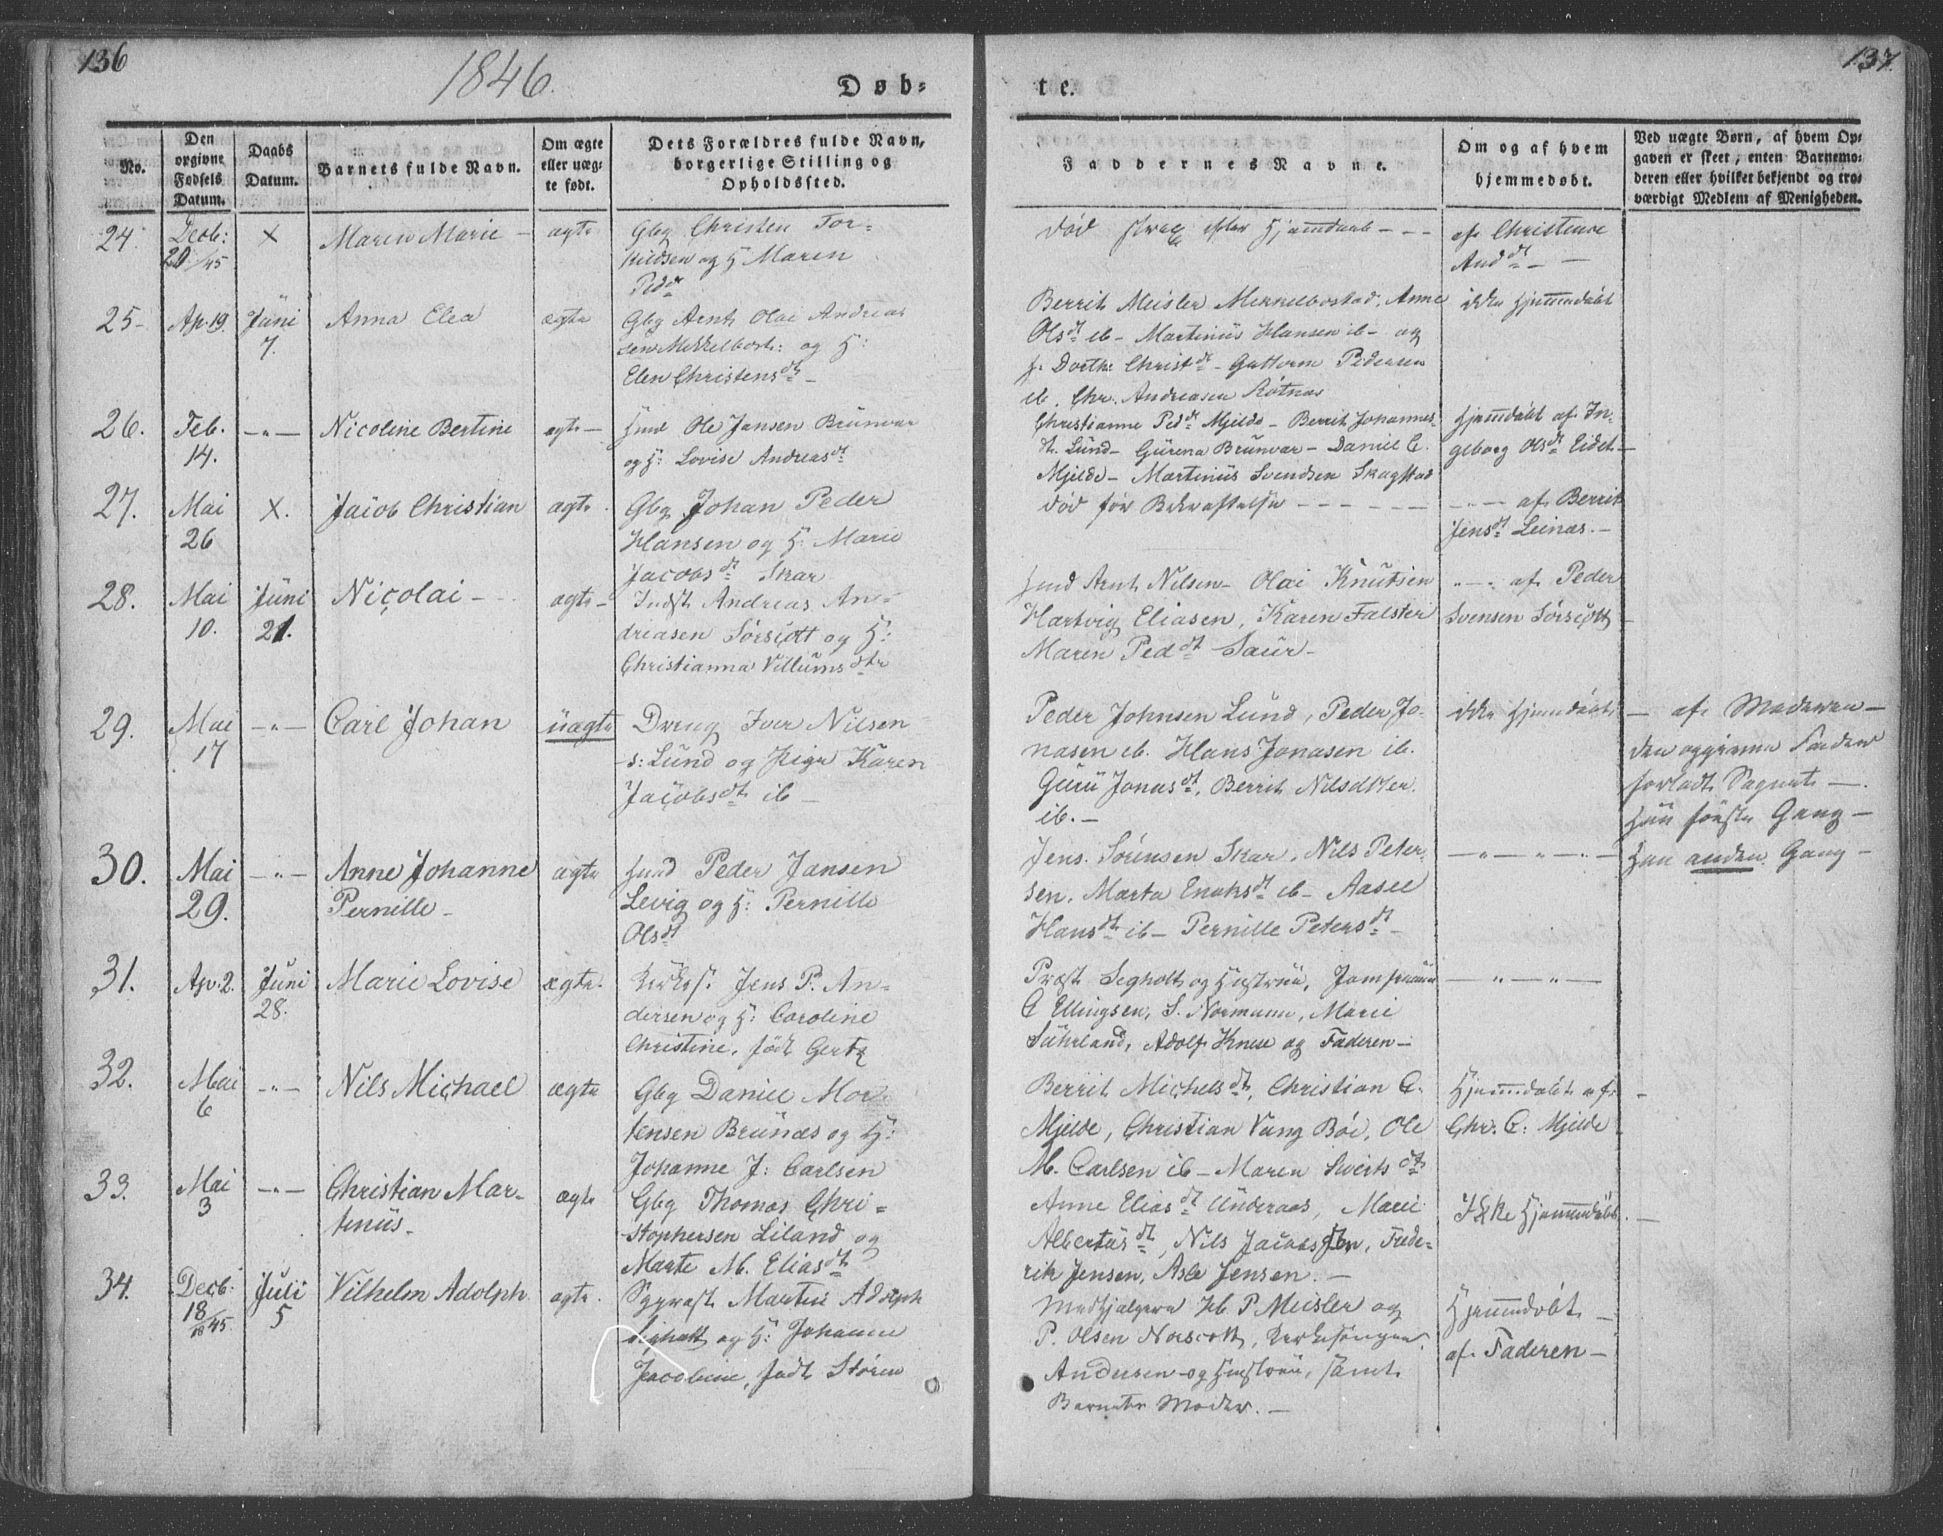 136
1846.
Døb-
te.
137.
No.
Den opgivne Fødsels Datum.
Daabs Datum.
Barnets fulde Navn.
Om ægte eller uægte født.
Dets Forældres fulde Navn, borgerlige Stilling og Opholdssted.
Faddernes Navne.
Om og af hvem hjemmedøbt.
Ved uægte Børn, af hvem Opgaven er skeet, enten Barnemoderen eller hvilket bekjendt og troværdigt Medlem af Menigheden.
24. Decb: 29/45 × Maren Marie - ægte
Gbg Christen Tor-
kildsen og H Maren
Pedd
død strax efter Hjemdaab - - -
af Christense
Anddt - -
25- Ap. 19. Juni 7. Anna Elea ægte
Gbg Arnt Olai Andreas
sen Mekkelbost: og H:
Elen Christensdt -
Berrit Meisler Mekkelbostad, Anne
Olsdt ib - Martinus Hansen ib - og
H. Dorth: Christdt - Guttorm Pedersen
ib. Chr. Andreasen Rotnæs
ikke Hjemmdøbt
26. Feb. 14. -"- Nicoline Bertine ægte -
Huusm Ole Jansen Brunvær
og H: Lovise Andreasdt
Christianne Peddt Mjelde - Berrit Johannes-
dt. Lund - Gurena Brunvær - Daniel C.
Mjelde - Martinus Svendsen Skagstad
Hjemdøbt af In-
geborg Olsdt Eidet -
27. Mai 26 ×. Jacob Christian ægte.
Gbg Johan Peder
Hansen og H: Marie
Jacobsdt Skar
død før Bekræftelse - - - - - -
-"- af Berrit
Jensdt Leinæs. -
28. Mai 10. Juni 21. Nicolai - - ægte -
Indst Andreas An-
dreasen Sørsjott og H:
Christianna Villumsdtr
Huusm Arnt Nilsen - Olai Knutsen
Hartvig Eliasen, Karen Falster
Maren Peddt Saur -
-"- af Peder
Svensen Sørsjott -
29. Mai 17 -"- Carl Johan uægte
Dreng Iver Nilsen
s: Lund og Pige Karen
Jacobsdt ib -
Peder Johnsen Lund, Peder Jo-
nasen ib. Hans Jonasen ib.
Guru Jonasdt, Berrit Nilsdtter
ib. -
ikke Hjemdøbt
- af Moderen -
den opgivne Fader
forladt Sognet -.
Hun første Gang -
Han anden Gang -
30. Mai 29. -"- Anne Johanne Pernille - ægte
Huusm Peder Jansen
Levig og H: Pernille
Olsdt
Jens Sørensen Skar, Nils Peter-
sen, Marta Enoksdt ib - Aasel
Hansdt ib - Pernille Petersdt -
-"-"-"-
31. Ap. 2. Juni 28. Marie Lovise ægte.
Kirkes: Jens P. An-
dersen og H: Caroline
Christine, født Gertz
Præst Segholt og Hustrue, Jomfruen
C Ellingsen, S. Normann, Marie
Suhrland, Adolf Kruse og Faderen -
-"-"-
32. Mai 6 -"- Nils Michael ægte
Gbg Daniel Mor-
tensen Brunæs og H:
Johanne J: Carlsen
Berrit Michelsdt, Christian C.
Mjelde, Christian Vang Bøe, Ole
M. Carlsen ib - Maren Sivertsdt
Hjemmdøbt af -
Chr. C: Mjelde
33. Mai 3 -"- Christian Mar-
tinus - ægte
Gbg Thomas Chri-
stophersen Liland og
Marte M. Eliasdt
Anne Eliasdt Underaas, Marie
Albertusdt, Nils Jacobsen, Fride-
rik Jensen, Asle Jensen. -
Ikke Hjemmdøbt. -
34. Decb: 18/45. Juli 5 Vilhelm Adolph ægte.
Sogepræst Martin Adolph
Seghott og H: Johanne
Jacobine, født Støren
Medhjelperne H. P. Meisler og
P. Olsen Norscott, Kirkesanger
Andersen og Hustrue, samt
Barnets Moder. -
Hjemmdøbt -
af Faderen -